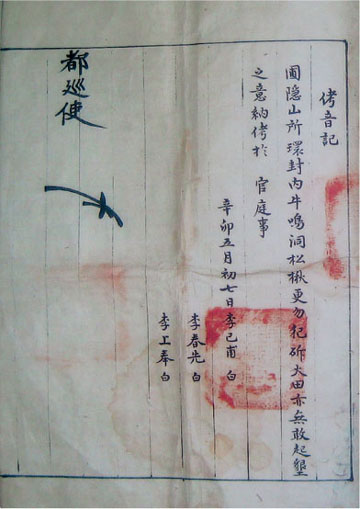 侤音記
圃隐山所環封内牛鳴洞松楸更勿犯斫火田亦無敢起墾
之意納侤於 官庭事
辛卯五月初七日李己甫 白
李春先 白
李上奉 白
都巡使